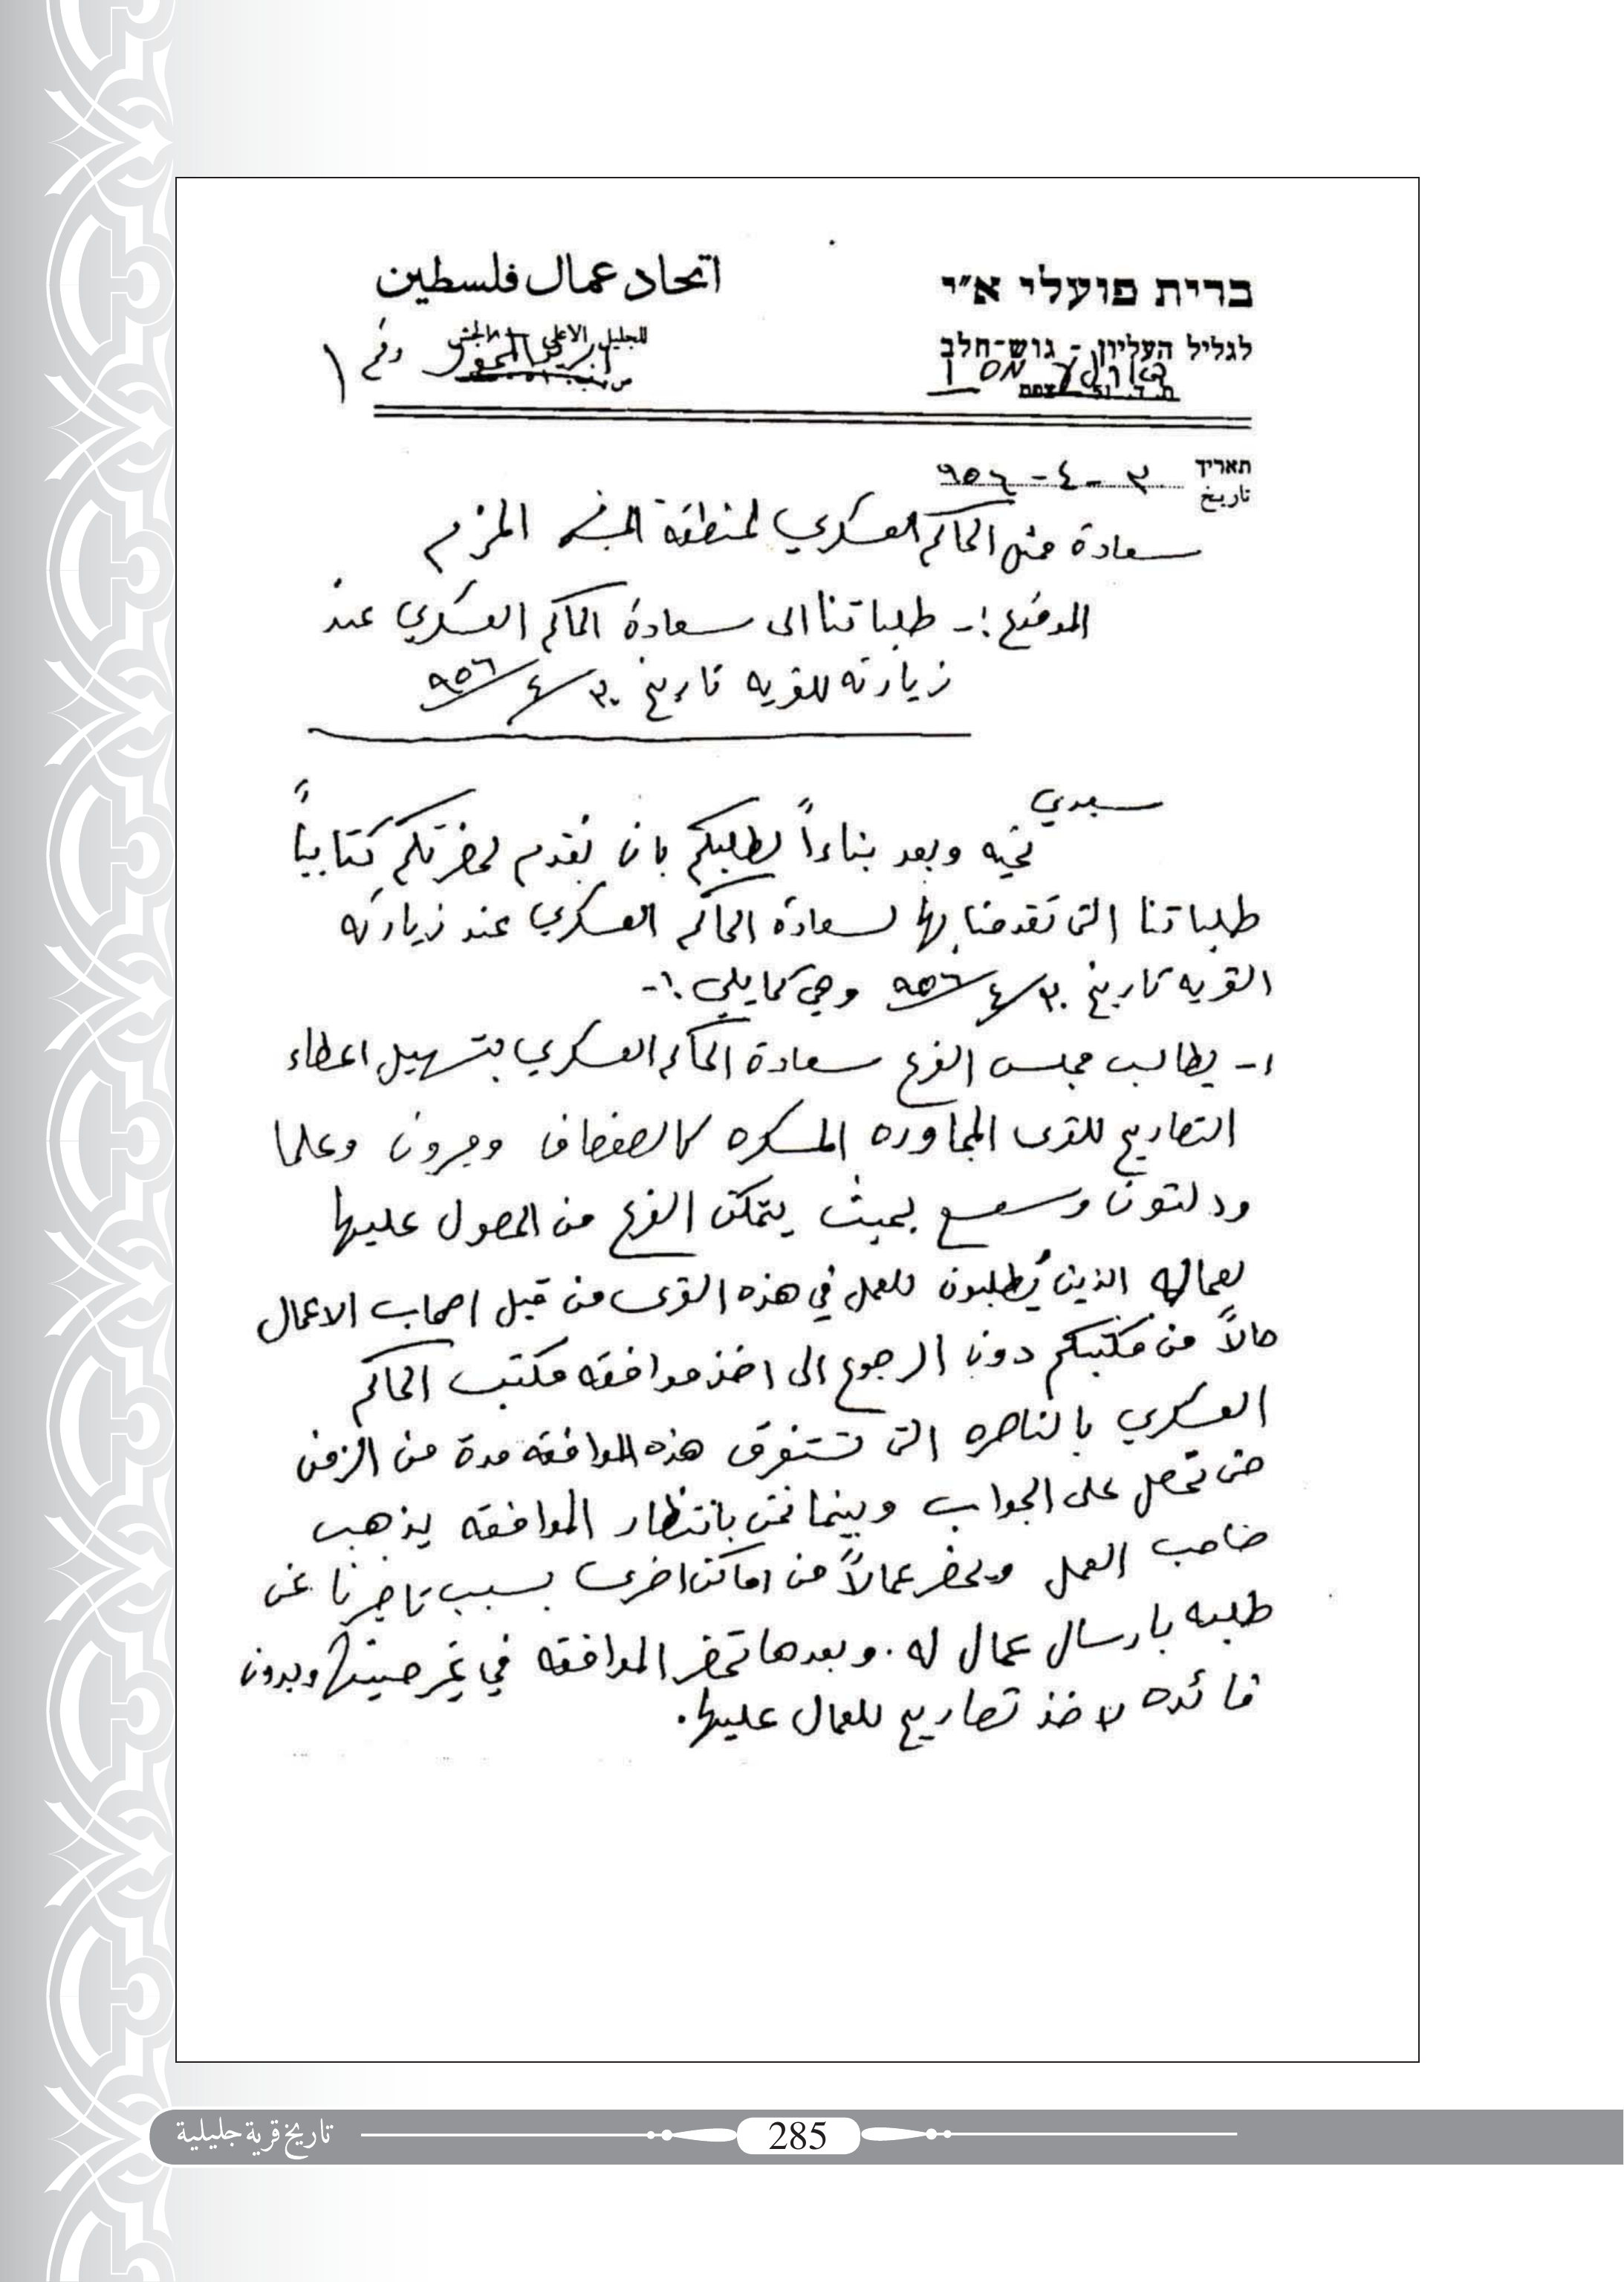 ברית פועלי א״י
اتحاد عمال فلسطين
לגליל העליון - גוש-חלב
للجليل الاعلى - الجش
ת. ד. צפת
رقم ١
תאריך
تاريخ
٣-٤-٩٥٦
سعادة ممثل الحاكم العسكري لمنطقة الجش المحترم
الموضوع :- طلباتنا الى سعادة الحاكم العسكري عند
زيارته للقريه تاريخ ٣٠/٤/٩٥٦
سيدي
تحيه وبعد بناءاً لطلبكم بان نقدم لحضرتكم كتابياً
طلباتنا التى تقدمنا بها لسعادة الحاكم العسكري عند زيارته
القريه تاريخ ٣٠/٤/٩٥٦ وهي كما يلي :-
١- يطالب مجلس الفرع سعادة الحاكم العسكري بتسهيل اعطاء
التصاريح للقرى المجاوره المسكره كالصفصاف وميرون وعلما
ودلتون وسعسع بحيث يتمكن الفرع من الحصول عليها
لعماله الذين يُطلبون للعمل في هذه القرى من قبل اصحاب الاعمال
حالاً من مكتبكم دون الرجوع الى اخذ موافقه مكتب الحاكم
العسكري بالناصره التى تستغرق هذه الموافقه مدة من الزمن
حتى تحصل على الجواب وبينما نحن بانتظار الموافقه يذهب
صاحب العمل ويحضر عمالاً من اماكن اخرى بسبب تاخيرنا عن
طلبه بارسال عمال له . وبعدها تحضر الموافقه في غير حينها وبدون
فائده لاخذ تصاريح للعمال عليها .
تاريخ قرية جليلية
285